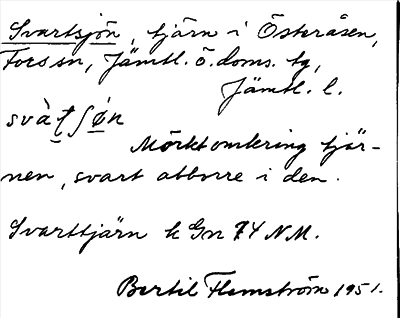 Svartsjön, tjärn i Österåsen,
Fors sn, Jämtl. ö. doms. tg,
Jämtl. l.
svàt̮ʃø̀n
Mörkt omkring tjär-
nen, svart abborre i den.
Svarttjärn k Gn 74 NM.
Bertil Flemström 1951.